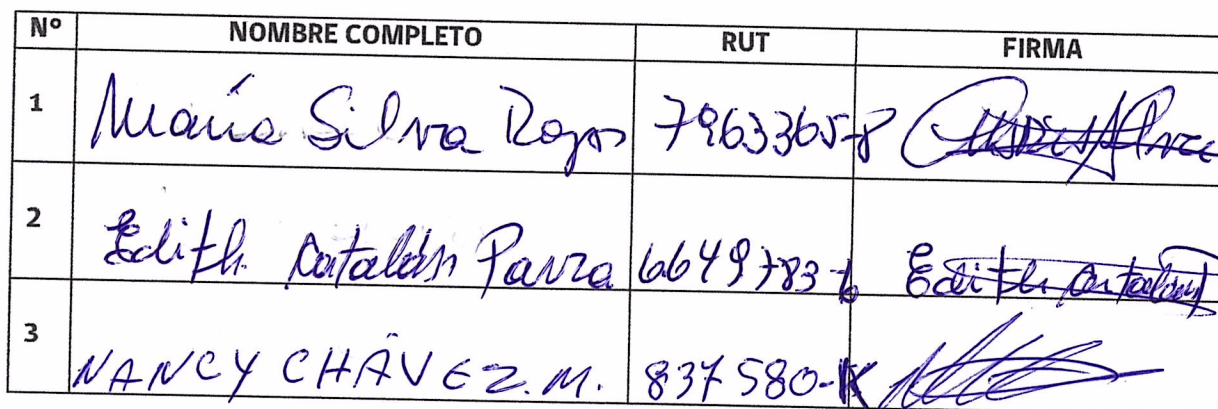 Nº NOMBRE COMPLETO RUT FIRMA
1 María Silva Rojas 7963365-8
2 Edith Catalán Parra 6649783-6 Edith Catalán
3 NANCY CHÁVEZ.M. 837580-K